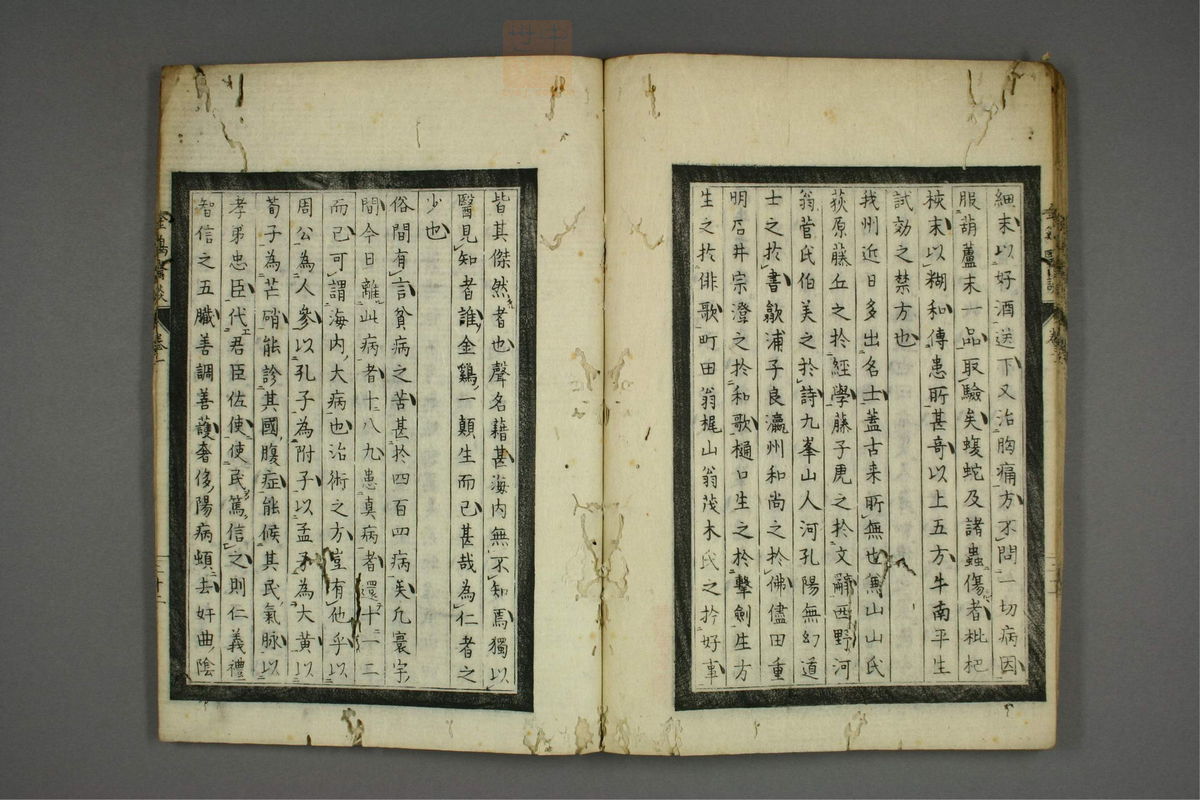 細末以好酒送下又治胸痛方不問一切病因
服葫蘆末一品取驗矣蝮蛇及諸蟲傷者枇杷
核末以糊和傳患所甚奇以上五方牛南平生
試効之禁方也
我州近日多出名士蓋古来所無也馬山山氏
荻原藤丘之於經學藤子虎之於文辭西野河
翁菅氏伯美之於詩九峯山人河孔陽無幻道
士之於書歙浦子良瀛州和尚之於佛儘田重
明石井宗澄之於和歌樋口生之於擊劍生方
生之於俳歌町田翁梶山翁茂木氏之於好事
皆其傑然者也聲名藉甚海内無不知焉獨以
醫見知者誰金鷄一顛生而已甚哉為仁者之
少也
俗間有言貧病之苦甚於四百四病矣凢寰宇
間今日離此病者十八九患真病者還十一二
而已可謂海内大病也治術之方豈有他乎以
周公為人參以孔子為附子以孟子為大黄以
荀子為芒硝能診其國腹症能候其民氣脉以
孝弟忠臣代君臣佐使使民篤信之則仁義禮
智信之五臓善調善護奢侈陽病頓去奸曲陰
金鷄醫談